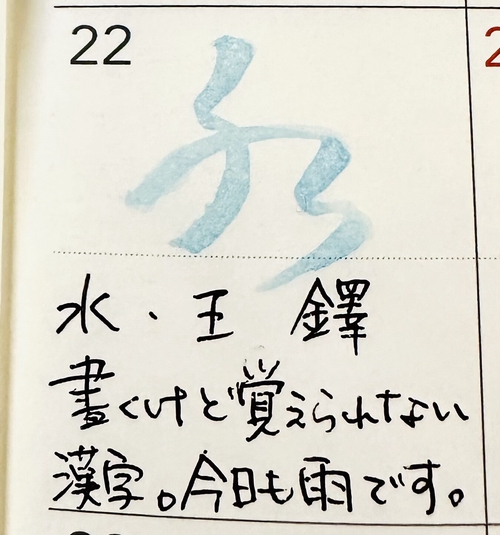 22
水・王 鐸
書くけど覚えられない
漢字。今日も雨です。